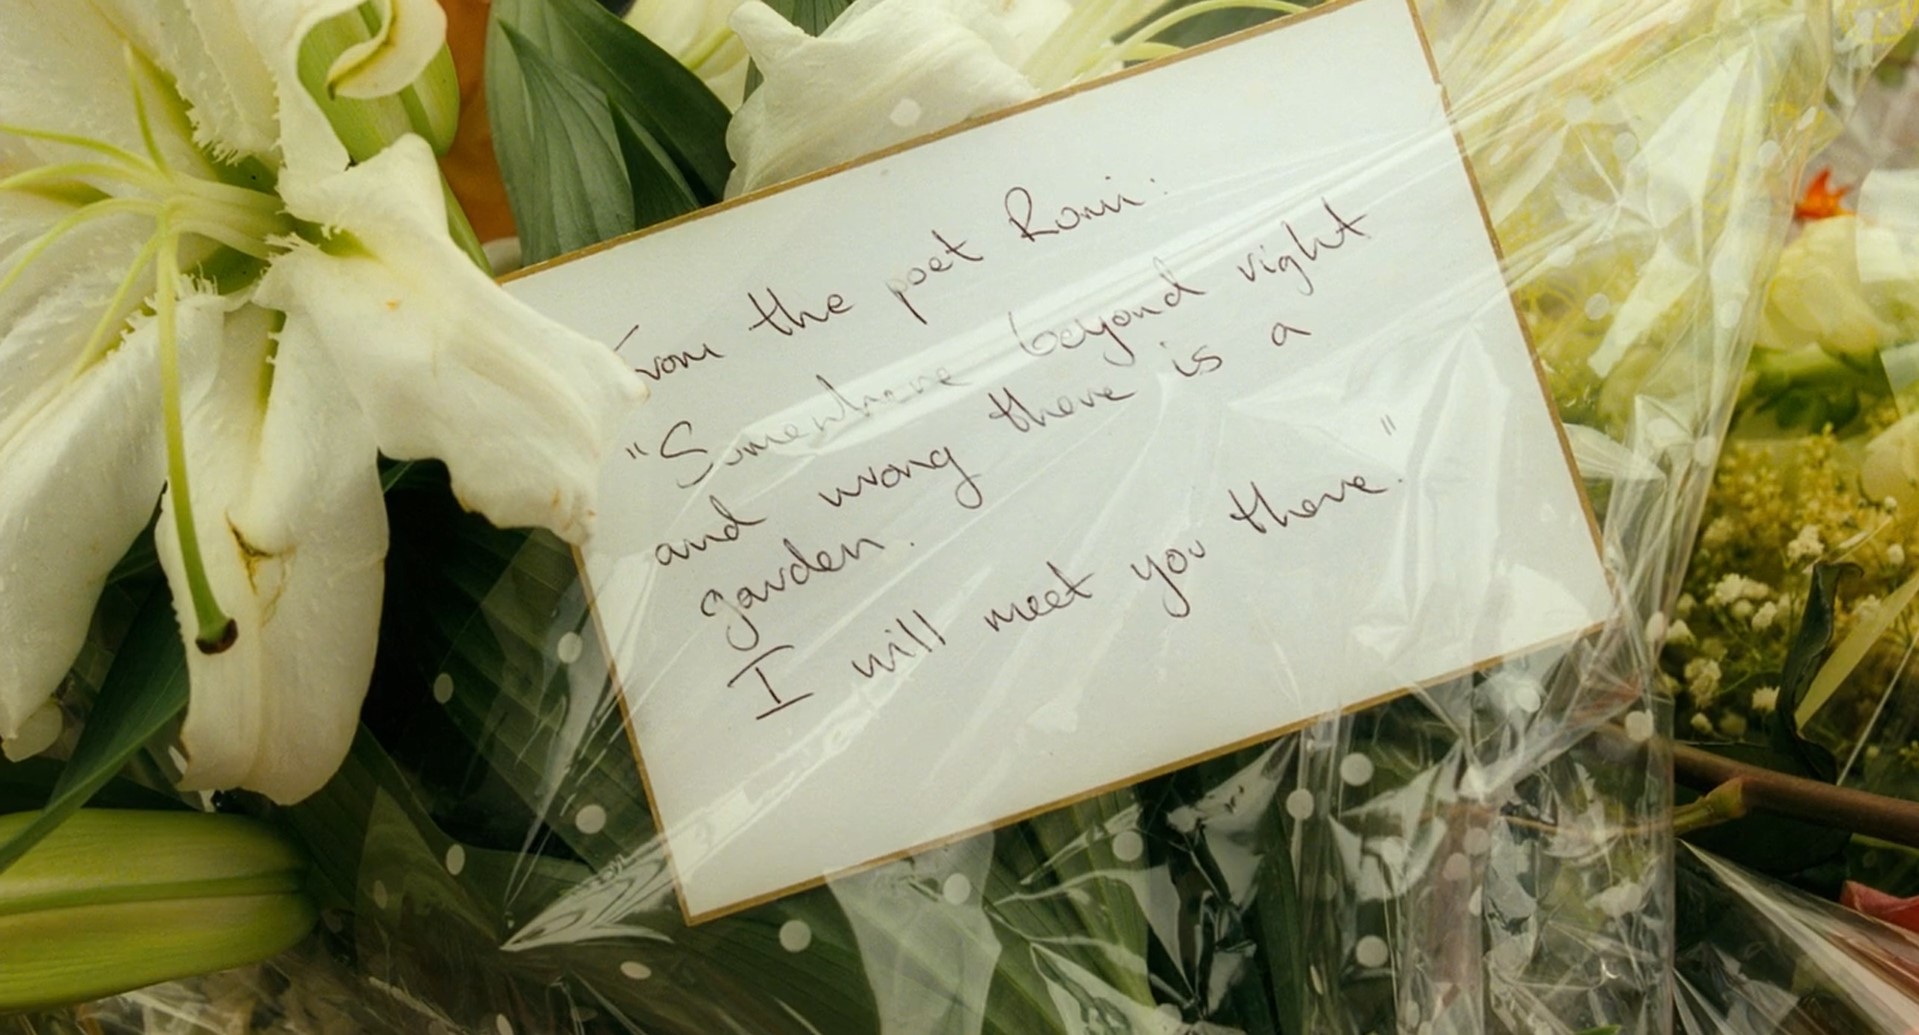 From the poet Romi:
"Somewhere beyond right
and wrong there is a
garden.
I will meet you there."